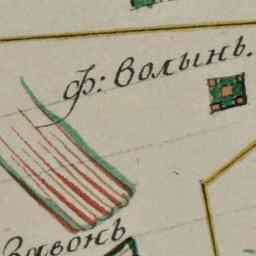 ф: волынь.
Завонь